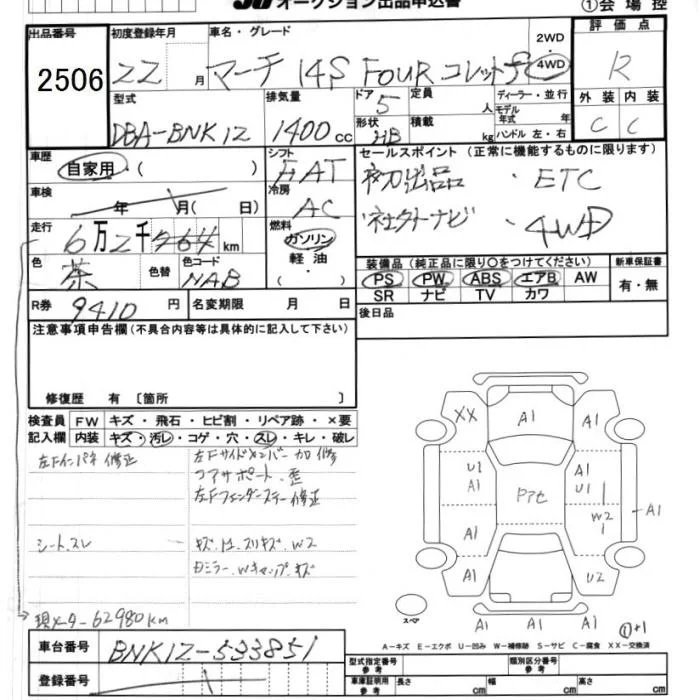 オークション出品申込書
①会場控
出品番号
2506
初度登録年月
22 月
車名・グレード
マーチ 14S FOUR コレット
2WD
4WD
評価点
R
型式
DBA-BNK12
排気量
1400 cc
ドア 5
形状 HB
定員 人
積載 kg
ディーラー・並行
モデル年式 年
ハンドル 左・右
外装 内装
C C
車歴
自家用・( )
シフト
FAT
セールスポイント (正常に機能するものに限ります)
初出品 ・ETC
社外ナビ ・4WD
車検
年 月( 日)
冷房
AC
走行
6万2千964 km
燃料
ガソリン
軽油
( )
色
茶
色替
色コード
NAB
装備品(純正品に限り○をつけてください)
PS PW ABS エアB AW
SR ナビ TV カワ
新車保証書
有・無
R券
9410 円
名変期限 月 日
後日品
注意事項申告欄(不具合内容等は具体的に記入して下さい)
修復歴 有〔箇所 〕
検査員記入欄
FW キズ・飛石・ヒビ割・リペア跡・×要
内装 キズ・汚レ・コゲ・穴・スレ・キレ・破レ
左Fインパネ 修正
左Fサイドメンバー 加修
コアサポート 歪
左Fフェンダーステー 修正
シート.スレ
キズ.凹.スリキズ.W2
右ミラー.Wキャップ.キズ
現メーター62980km
XX A1 A1
U1 A1
A1 U1
Pアセ
W2
A1
A1
A1 U2
スペア
A1 A1
A1
①+1
A-キズ E-エクボ U-凹み W-補修跡 S-サビ C-腐食 XX-交換済
車台番号
BNK12-533851
登録番号
型式指定番号 参考
類別区分番号 参考
車庫証明用 参考
長さ cm
幅 cm
高さ cm